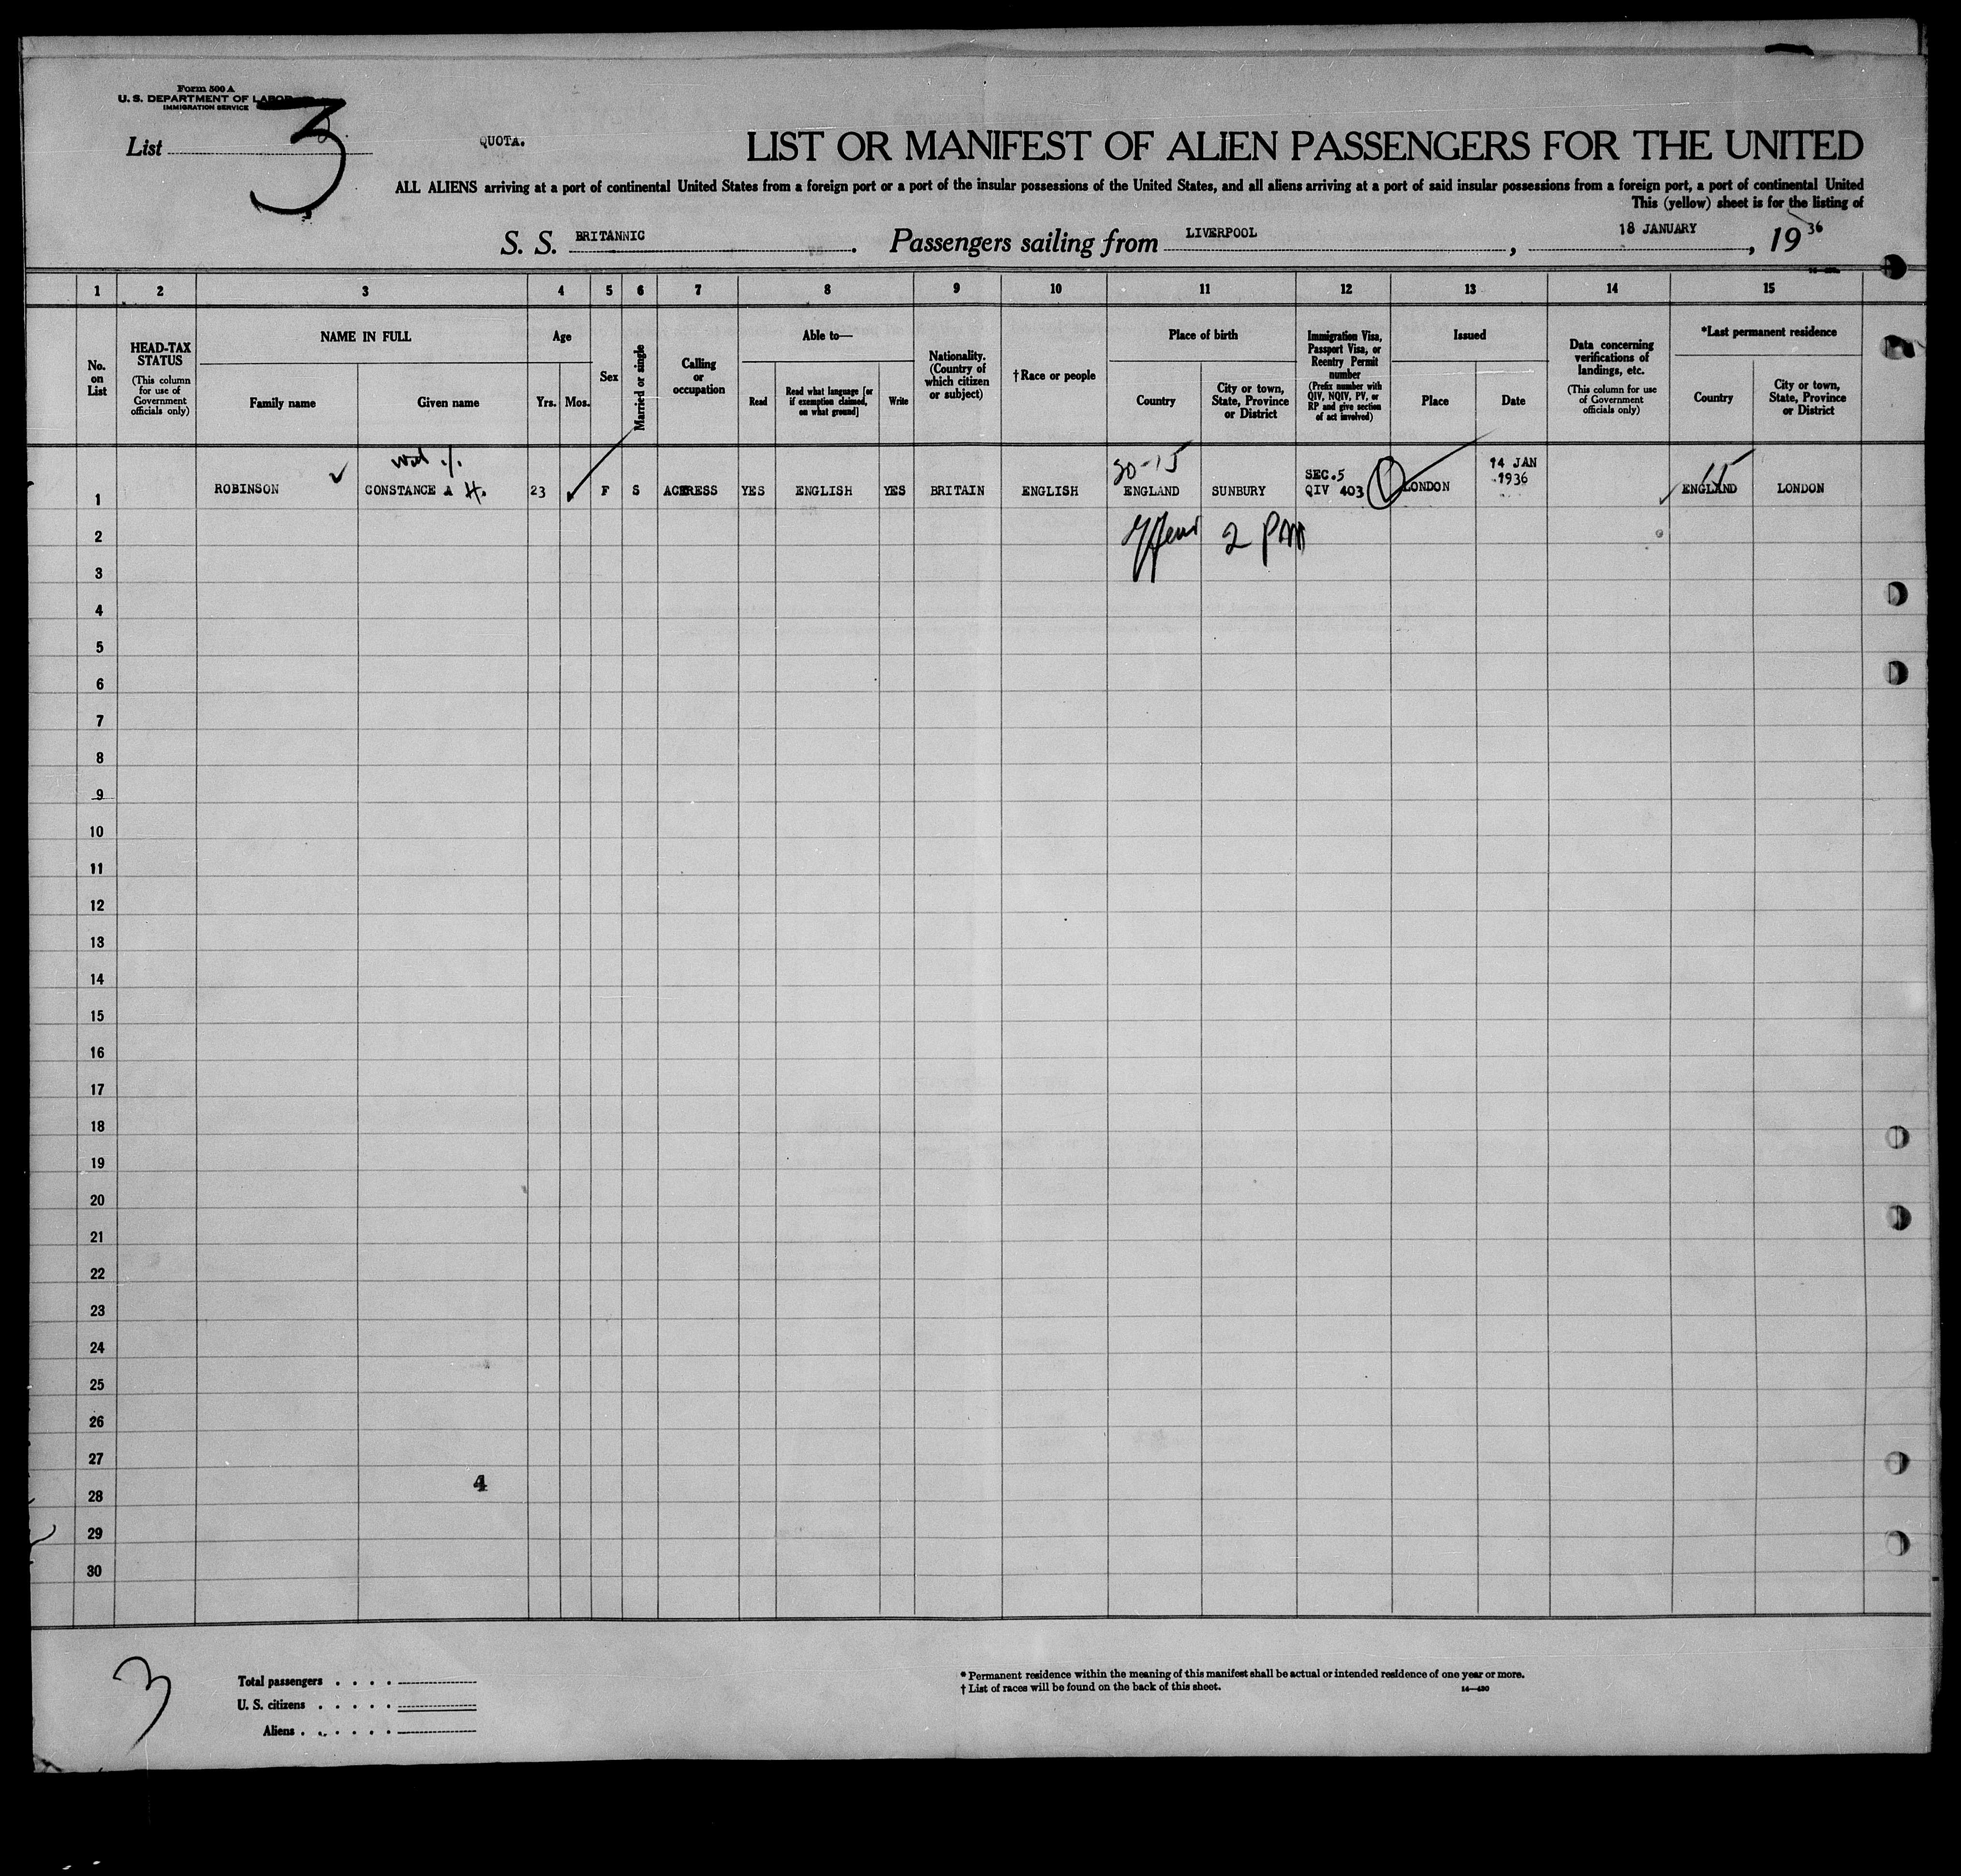 Form 500 A
U. S. DEPARTMENT OF LABOR
IMMIGRATION SERVICE
List 3
QUOTA.
LIST OR MANIFEST OF ALIEN PASSENGERS FOR THE UNITED
ALL ALIENS arriving at a port of continental United States from a foreign port or a port of the insular possessions of the United States, and all aliens arriving at a port of said insular possessions from a foreign port, a port of continental United
This (yellow) sheet is for the listing of
S. S. BRITANNIC. Passengers sailing from LIVERPOOL, 18 JANUARY, 1936
1 2 3 4 5 6 7 8 9 10 11 12 13 14 15
No. on List
HEAD-TAX STATUS
(This column for use of Government officials only)
NAME IN FULL
Family name
Given name
Age
Yrs. Mos.
Sex
Married or single
Calling or occupation
Able to—
Read
Read what language [or if exemption claimed, on what ground]
Write
Nationality. (Country of which citizen or subject)
†Race or people
Place of birth
Country
City or town, State, Province or District
Immigration Visa, Passport Visa, or Reentry Permit number
(Prefix number with QIV, NQIV, PV, or RP and give section of act involved)
Issued
Place
Date
Data concerning verifications of landings, etc.
(This column for use of Government officials only)
*Last permanent residence
Country
City or town, State, Province or District
30-15
15
1 ROBINSON CONSTANCE A H. 23 F S ACTRESS YES ENGLISH YES BRITAIN ENGLISH ENGLAND SUNBURY SEC.5 QIV 403 LONDON 14 JAN 1936 ENGLAND LONDON
2 2 PM
3
4
5
6
7
8
9
10
11
12
13
14
15
16
17
18
19
20
21
22
23
24
25
26
27
4
28
29
30
3
Total passengers
U. S. citizens
Aliens
* Permanent residence within the meaning of this manifest shall be actual or intended residence of one year or more.
† List of races will be found on the back of this sheet.
14—430